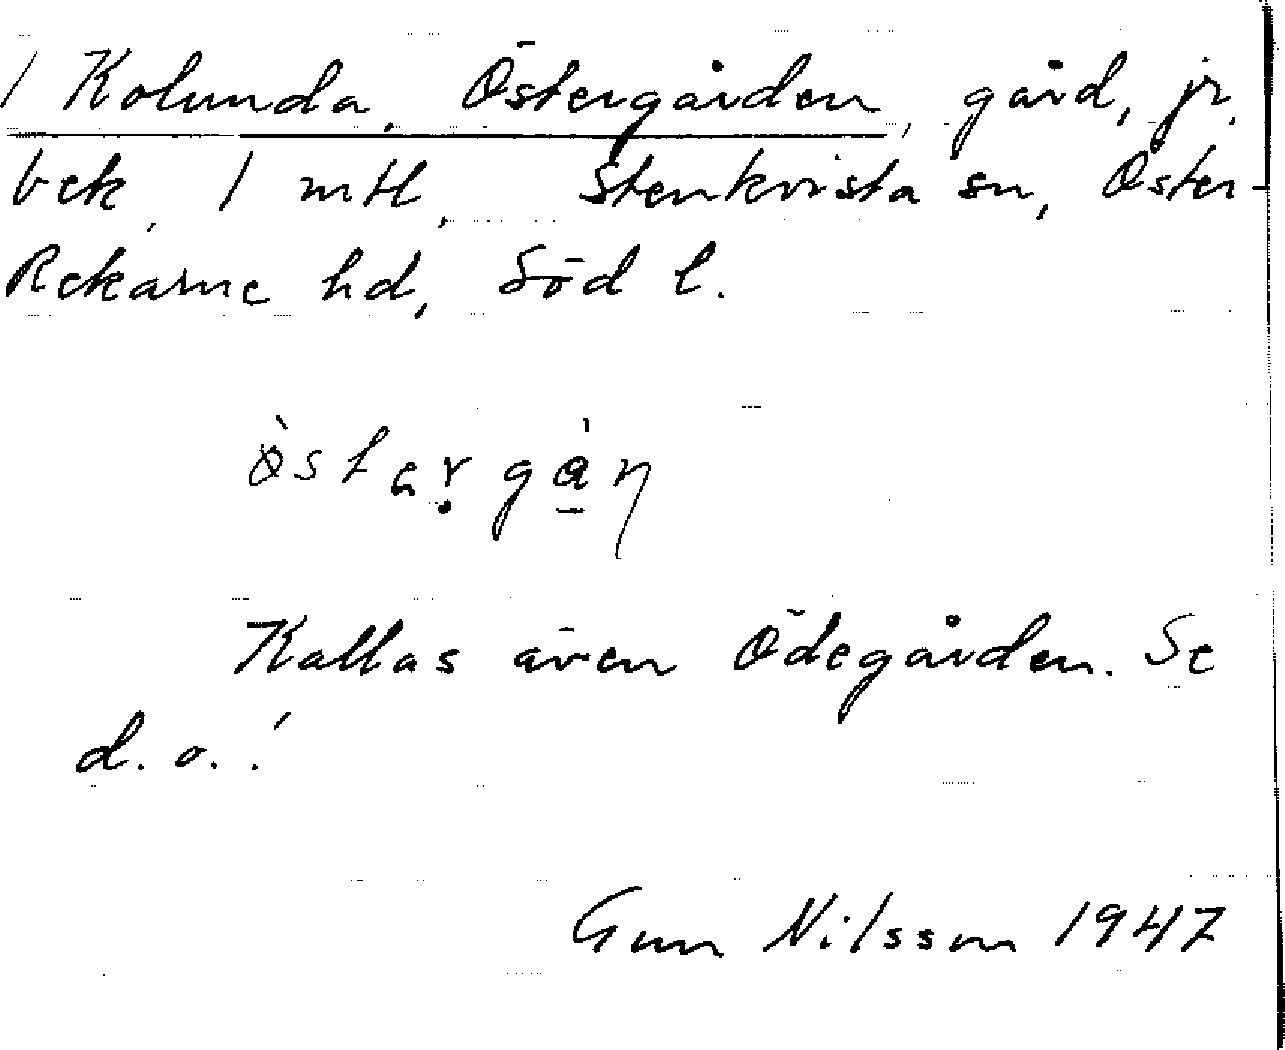 1 Kolunda, Östergården, gård, jr.
bek, 1 mtl, Stenkvista sn, Öster-
Rekarne hd, Söd l.
Kallas även Ödegården. Se
d. o.!
Gun Nilsson 1947